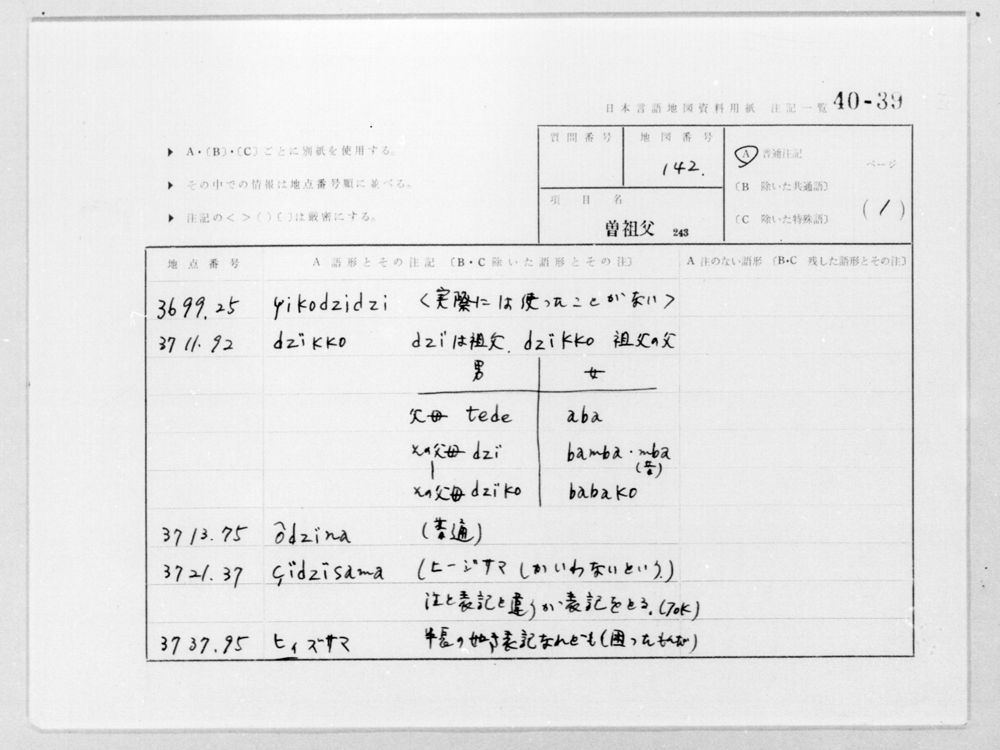 日本言語地図資料用紙 注記一覧 40-39
▶ A・〔B〕・〔C〕ごとに別紙を使用する。
▶ その中での情報は地点番号順に並べる。
▶ 注記の< >( )〔 〕は厳密にする。
質問番号
地図番号
142.
項目名
曽祖父 243
A 普通注記
〔B 除いた共通語〕
〔C 除いた特殊語〕
ページ
(1)
地点番号 A 語形とその注記〔B・C除いた語形とその注〕 A 注のない語形〔B・C 残した語形とその注〕
3699.25 çikodzidzi <実際には使ったことがない>
3711.92 dzikko dziは祖父、dzikko 祖父の父
男 女
父母 tede aba
父の父母 dzi bamba・mba
(普)
父の父母 dziko babako
3713.75 ôdzina (普通)
3721.37 çïdzïsama (ヒージサマしかいわないという。)
注と表記と違うが表記をとる。(TOK)
3737.95 ヒィズサマ 半長の如き表記なんども(困ったもんだ)